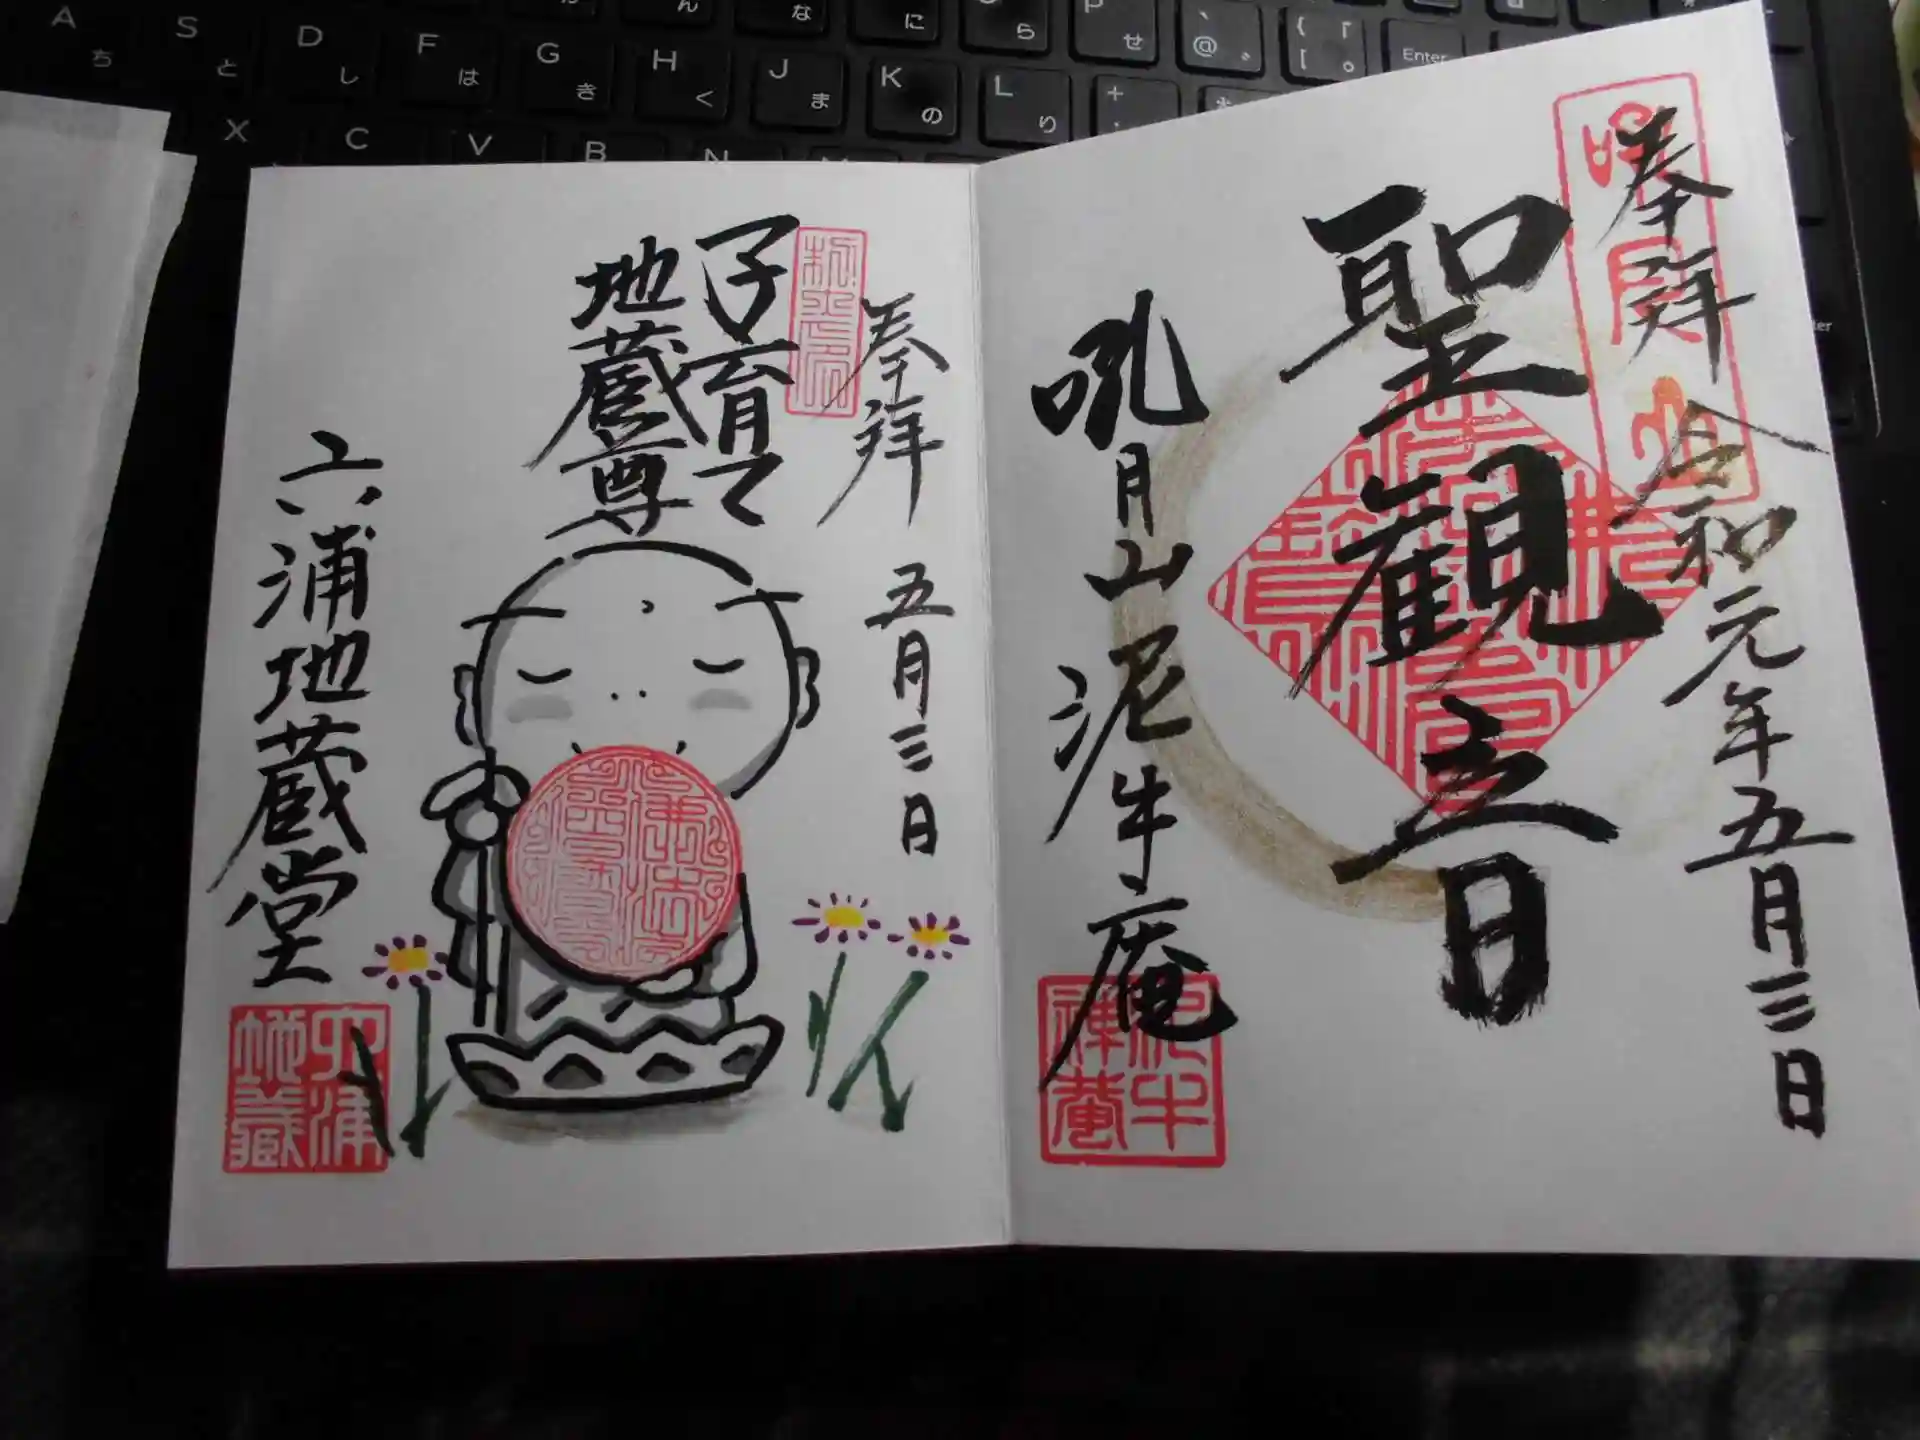 A ち
S と
D し
F は
G き
H く
J ま
K の
L り
P せ
@
Enter
X
C
V
B
N
奉拝
令和元年五月三日
聖観音
吼月山泥牛庵
奉拝
五月三日
子育て
地蔵尊
六浦地蔵堂
六浦
地蔵